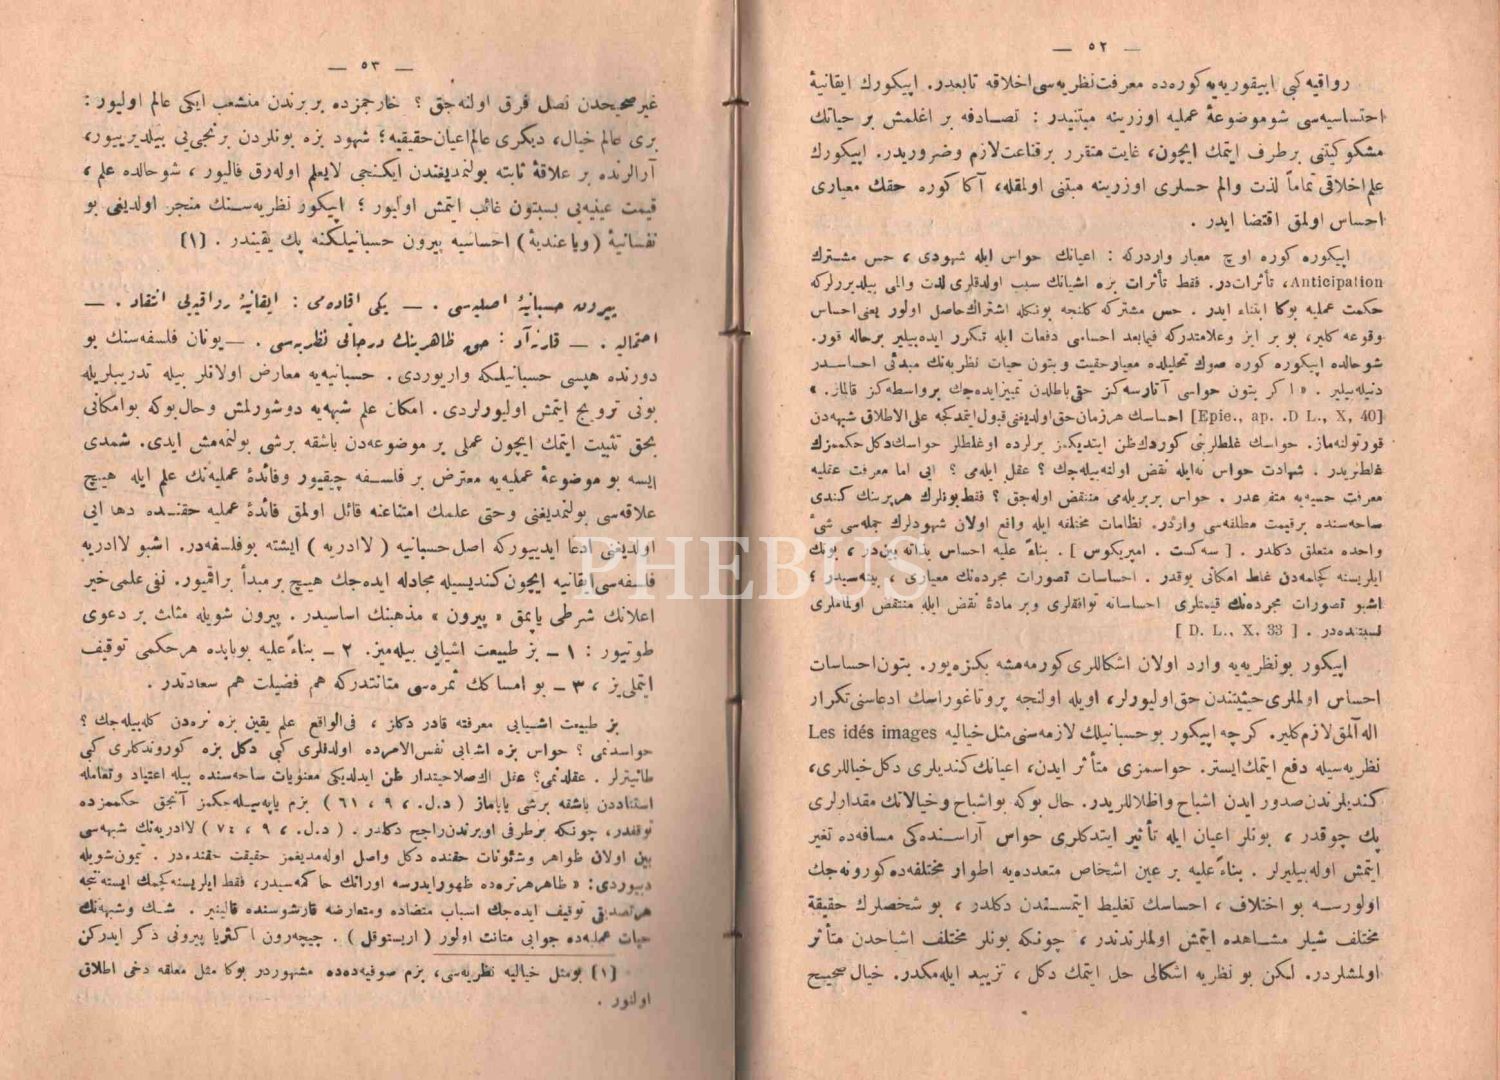 — ٥٢ —
رواقیه‌کبی اپیقوریه‌یه کوره‌ده معرفت نظریه‌سی اخلاقه تابعدر. اپیکورك ایقانیهٔ
احتساسیه‌سی شو موضوعهٔ عملیه اوزرینه مبتنیدر : تصادفه بر اغلمش بر حیاتك
مشکوکیتنی برطرف ایتمك ایچون، غایت متقرر بر قناعت لازم وضروریدر. اپیکورك
علم اخلاقی تماماً لذت والم حسلری اوزرینه مبتنی اولمقله، آکا کوره حقك معیاری
احساس اولمق اقتضا ایدر .
اپیکوره کوره اوچ معیار واردرکه : اعیانك حواس ایله شهودی ، حس مشترك
Anticipation، تأثرات‌در. فقط تأثرات بزه اشیانك سبب اولدقلری لذت والمی بیلدیررلرکه
حکمت عملیه بوکا ابتناء ایدر . حس مشترکه کلنجه بونکله اشتراك حاصل اولور یعنی احساس
وقوعه کلیر، بو بر ایز وعلامتدرکه فیمابعد احساسی دفعات ایله تکرر ایده‌بیلیر برحاله قور.
شو حالده اپیکوره کوره صوك تحلیلده معیار حقیقت وبتون حیات نظریه‌نك مبدئی احساسدر
دنیله‌بیلیر . « اکر بتون حواسی آتارسه‌کز حقی باطلدن تمییز ایده‌جك بر واسطه‌کز قالماز . »
[Epic., ap. .D L., X, 40] احساسك هر زمان حق اولدیغنی قبول ایتمدکجه علی الاطلاق شبهه‌دن
قورتولنه‌ماز. حواسك غلطلرینی کوردك ظن ایتدیکمز یرلرده او غلطلر حواسك دکل حکممزك
غلطریدر . شهادت حواس نه‌ایله نقض اولنه‌بیله‌جك ؟ عقل ایله‌می ؟ ایی اما معرفت عقلیه
معرفت حسیه‌یه متفرعدر . حواس بربریله‌می منتقض اوله‌جق ؟ فقط بونلرك هر برینك کندی
ساحه‌سنده بر قیمت مطلقه‌سی واردر. نظامات مختلفه ایله واقع اولان شهودلرك جمله‌سی شیٔ
واحده متعلق دکلدر . [ سه‌کست . امپریکوس ] . بناءً علیه احساس بذاته بین‌در ، بونك
ایلریسنه کچامه‌دن غلط امکانی یوقدر . احساسات تصورات مجرده‌نك معیاری ، بینه‌سیدر ؛
اشبو تصورات مجرده‌نك قیمتلری احساسانه توافقلری وبر مادهٔ نقض ایله منتقض اولماملری
نسبتنده‌در . [ D. L., X, 33 ]
اپیکور بو نظریه‌یه وارد اولان اشکاللری کورمه‌مشه بکزه‌یور. بتون احساسات
احساس اولملری حیثیتندن حق اولیورلر، اویله اولنجه پروتاغوراسك ادعاسنی تکرار
اله آلمق لازم کلیر. کرچه اپیکور بو حسبانیلك لازمه‌سنی مثل خیالیه Les idés images
نظریه‌سیله دفع ایتمك ایستر. حواسمزی متأثر ایدن، اعیانك کندیلری دکل خیاللری،
کندیلرندن صدور ایدن اشباح واظلالریدر. حال بوکه بو اشباح وخیالاتك مقدارلری
پك چوقدر ، بونلر اعیان ایله تأثیر ایتدکلری حواس آراسنده‌کی مسافه‌ده تغیر
ایتمش اوله‌بیلیرلر . بناءً علیه بر عین اشخاص متعدده‌یه اطوار مختلفه‌ده کورونه‌جك
اولورسه بو اختلاف ، احساسك تغلیط ایتمسندن دکلدر ، بو شخصلرك حقیقةً
مختلف شیلر مشاهده ایتمش اولملرندندر ، چونکه بونلر مختلف اشباحدن متأثر
اولمشلردر. لکن بو نظریه اشکالی حل ایتمك دکل ، تزیید ایله‌مکدر. خیال صحیح
— ٥٣ —
غیر صحیحدن نصل فرق اولنه‌جق ؟ خارجمزده بربرندن منشعب ایکی عالم اولیور :
بری عالم خیال، دیکری عالم اعیان حقیقیه ؛ شهود بزه بونلردن برنجی‌یی بیلدیرییور،
آرالرنده بر علاقهٔ ثابته بولنمدیغندن ایکنجی لایعلم اوله‌رق قالیور ، شو حالده علم ،
قیمت عینیه‌یی بسبتون غائب ایتمش اولیور ؛ اپیکور نظریه‌سنك منجر اولدیغی بو
نفسانیهٔ (ویا عندیهٔ) احساسیه پیرون حسبانیلکنه پك یقیندر . [١]
پیرون حسبانیهٔ اصلیه‌سی . — یکی اقاده‌می : ایقانیهٔ رواقیه‌یی انتقاد . —
احتمالیه . — قارنه‌آد : حق ظاهرینك درجاتی نظریه‌سی . — یونان فلسفه‌سنك بو
دورنده هپسی حسبانیلکه واریوردی . حسبانیه‌یه معارض اولانلر بیله تدریبلریله
بونی ترویج ایتمش اولیورلردی. امکان علم شبهه‌یه دوشورلمش وحال بوکه بو امکانی
بحق تثبیت ایتمك ایچون عملی بر موضوعه‌دن باشقه برشی بولنمه‌مش ایدی. شمدی
ایسه بو موضوعهٔ عملیه‌یه معترض بر فلسفه چیقیور وفائدهٔ عملیه‌نك علم ایله هیچ
علاقه‌سی بولنمدیغنی وحتی علمك امتناعنه قائل اولمق فائدهٔ عملیه حقنده دها ایی
اولدیغنی ادعا ایدییورکه اصل حسبانیه ( لاادریه ) ایشته بو فلسفه‌در. اشبو لاادریه
فلسفه‌سی ایقانیه ایچون کندیسیله مجادله ایده‌جك هیچ بر مبدأ براقیور. نفی علمی خیر
اعلانك شرطی یاپمق « پیرون » مذهبنك اساسیدر . پیرون شویله مثلث بر دعوی
طوتیور : ١ – بز طبیعت اشیایی بیله‌میز. ٢ – بناءً علیه بوبابده هر حکمی توقیف
ایتملی‌یز ، ٣ – بو امساکك ثمره‌سی متانتدرکه هم فضیلت هم سعادتدر .
بز طبیعت اشیایی معرفته قادر دکلز ، فی الواقع علم یقین بزه نره‌دن کله‌بیله‌جك ؟
حواسدنمی ؟ حواس بزه اشیایی نفس الامرده اولدقلری کبی دکل بزه کوروندکلری کبی
طانیتیرلر . عقلدنمی؟ عقل اك صلاحیتدار ظن ایدلدیکی معنویات ساحه‌سنده بیله اعتیاد وتعامله
استناددن باشقه برشی یاپاماز ( د.ل. ، ٩ ، ٦١ ) بزم یاپه‌بیله‌جکمز آنجق حکممزده
توقفدر، چونکه بر طرفی اوبرندن راجح دکلدر . ( د.ل. ، ٩ ، ٧٤ ) لاادریه‌نك شبهه‌سی
بین اولان ظواهر وشئونات حقنده دکل واصل اوله‌مدیغمز حقیقت حقنده‌در . تیمون شویله
دییوردی: « ظاهر هر نره‌ده ظهور ایدرسه اورانك حاکمه‌سیدر، فقط ایلریسنه کچمك ایسته‌نجه
هر تصدیقی توقیف ایده‌جك اسباب متضاده ومتعارضه قارشوسنده قالینیر . شك وشبهه‌نك
حیات عملیه‌ده جوابی متانت اولور ( اریستوقل ) . چیچه‌رون اکثریا پیرونی ذکر ایدرکن
[١] بو مثل خیالیه نظریه‌سی، بزم صوفیه‌ده‌ده مشهوردر بوکا مثل معلقه دخی اطلاق
اولنور .
PHEBUS